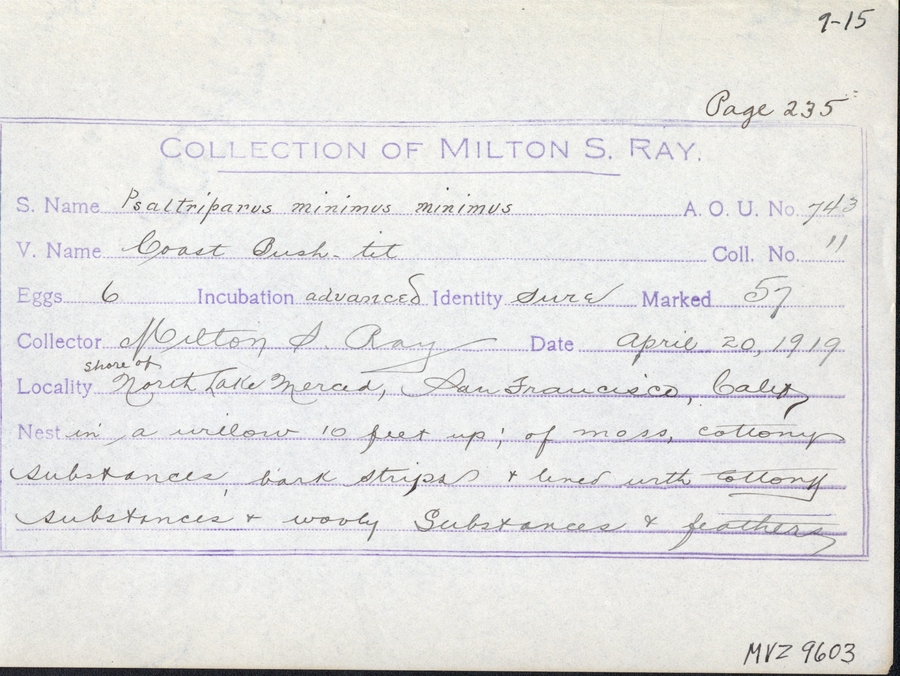 9-15
Page 235
COLLECTION OF MILTON S. RAY.
S. Name Psaltriparus minimus minimus A. O. U. No. 743
V. Name Coast Bush-tit Coll. No. 11
Eggs 6 Incubation advanced Identity sure Marked 57
Collector Milton S. Ray Date April 20, 1919
shore of
Locality North Lake Merced, San Francisco, Calif
Nest in a willow 10 feet up; of moss, cottony
substances, bark strips & lined with cottony
substances & wooly substances & feathers
MVZ 9603